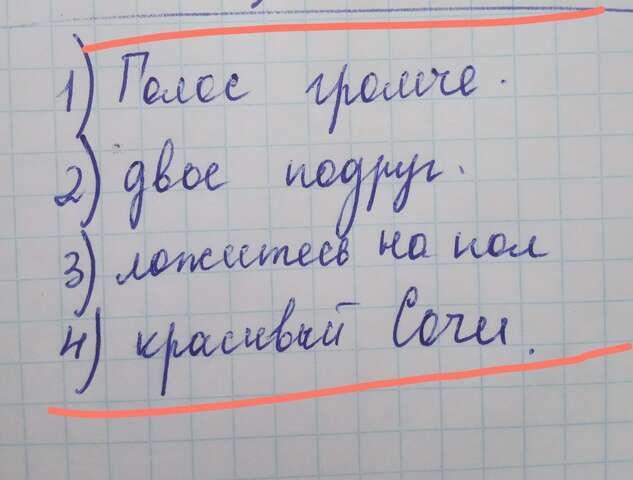 1) Голос громче.
2) двое подруг.
3) ложитесь на пол
4) красивый Сочи.